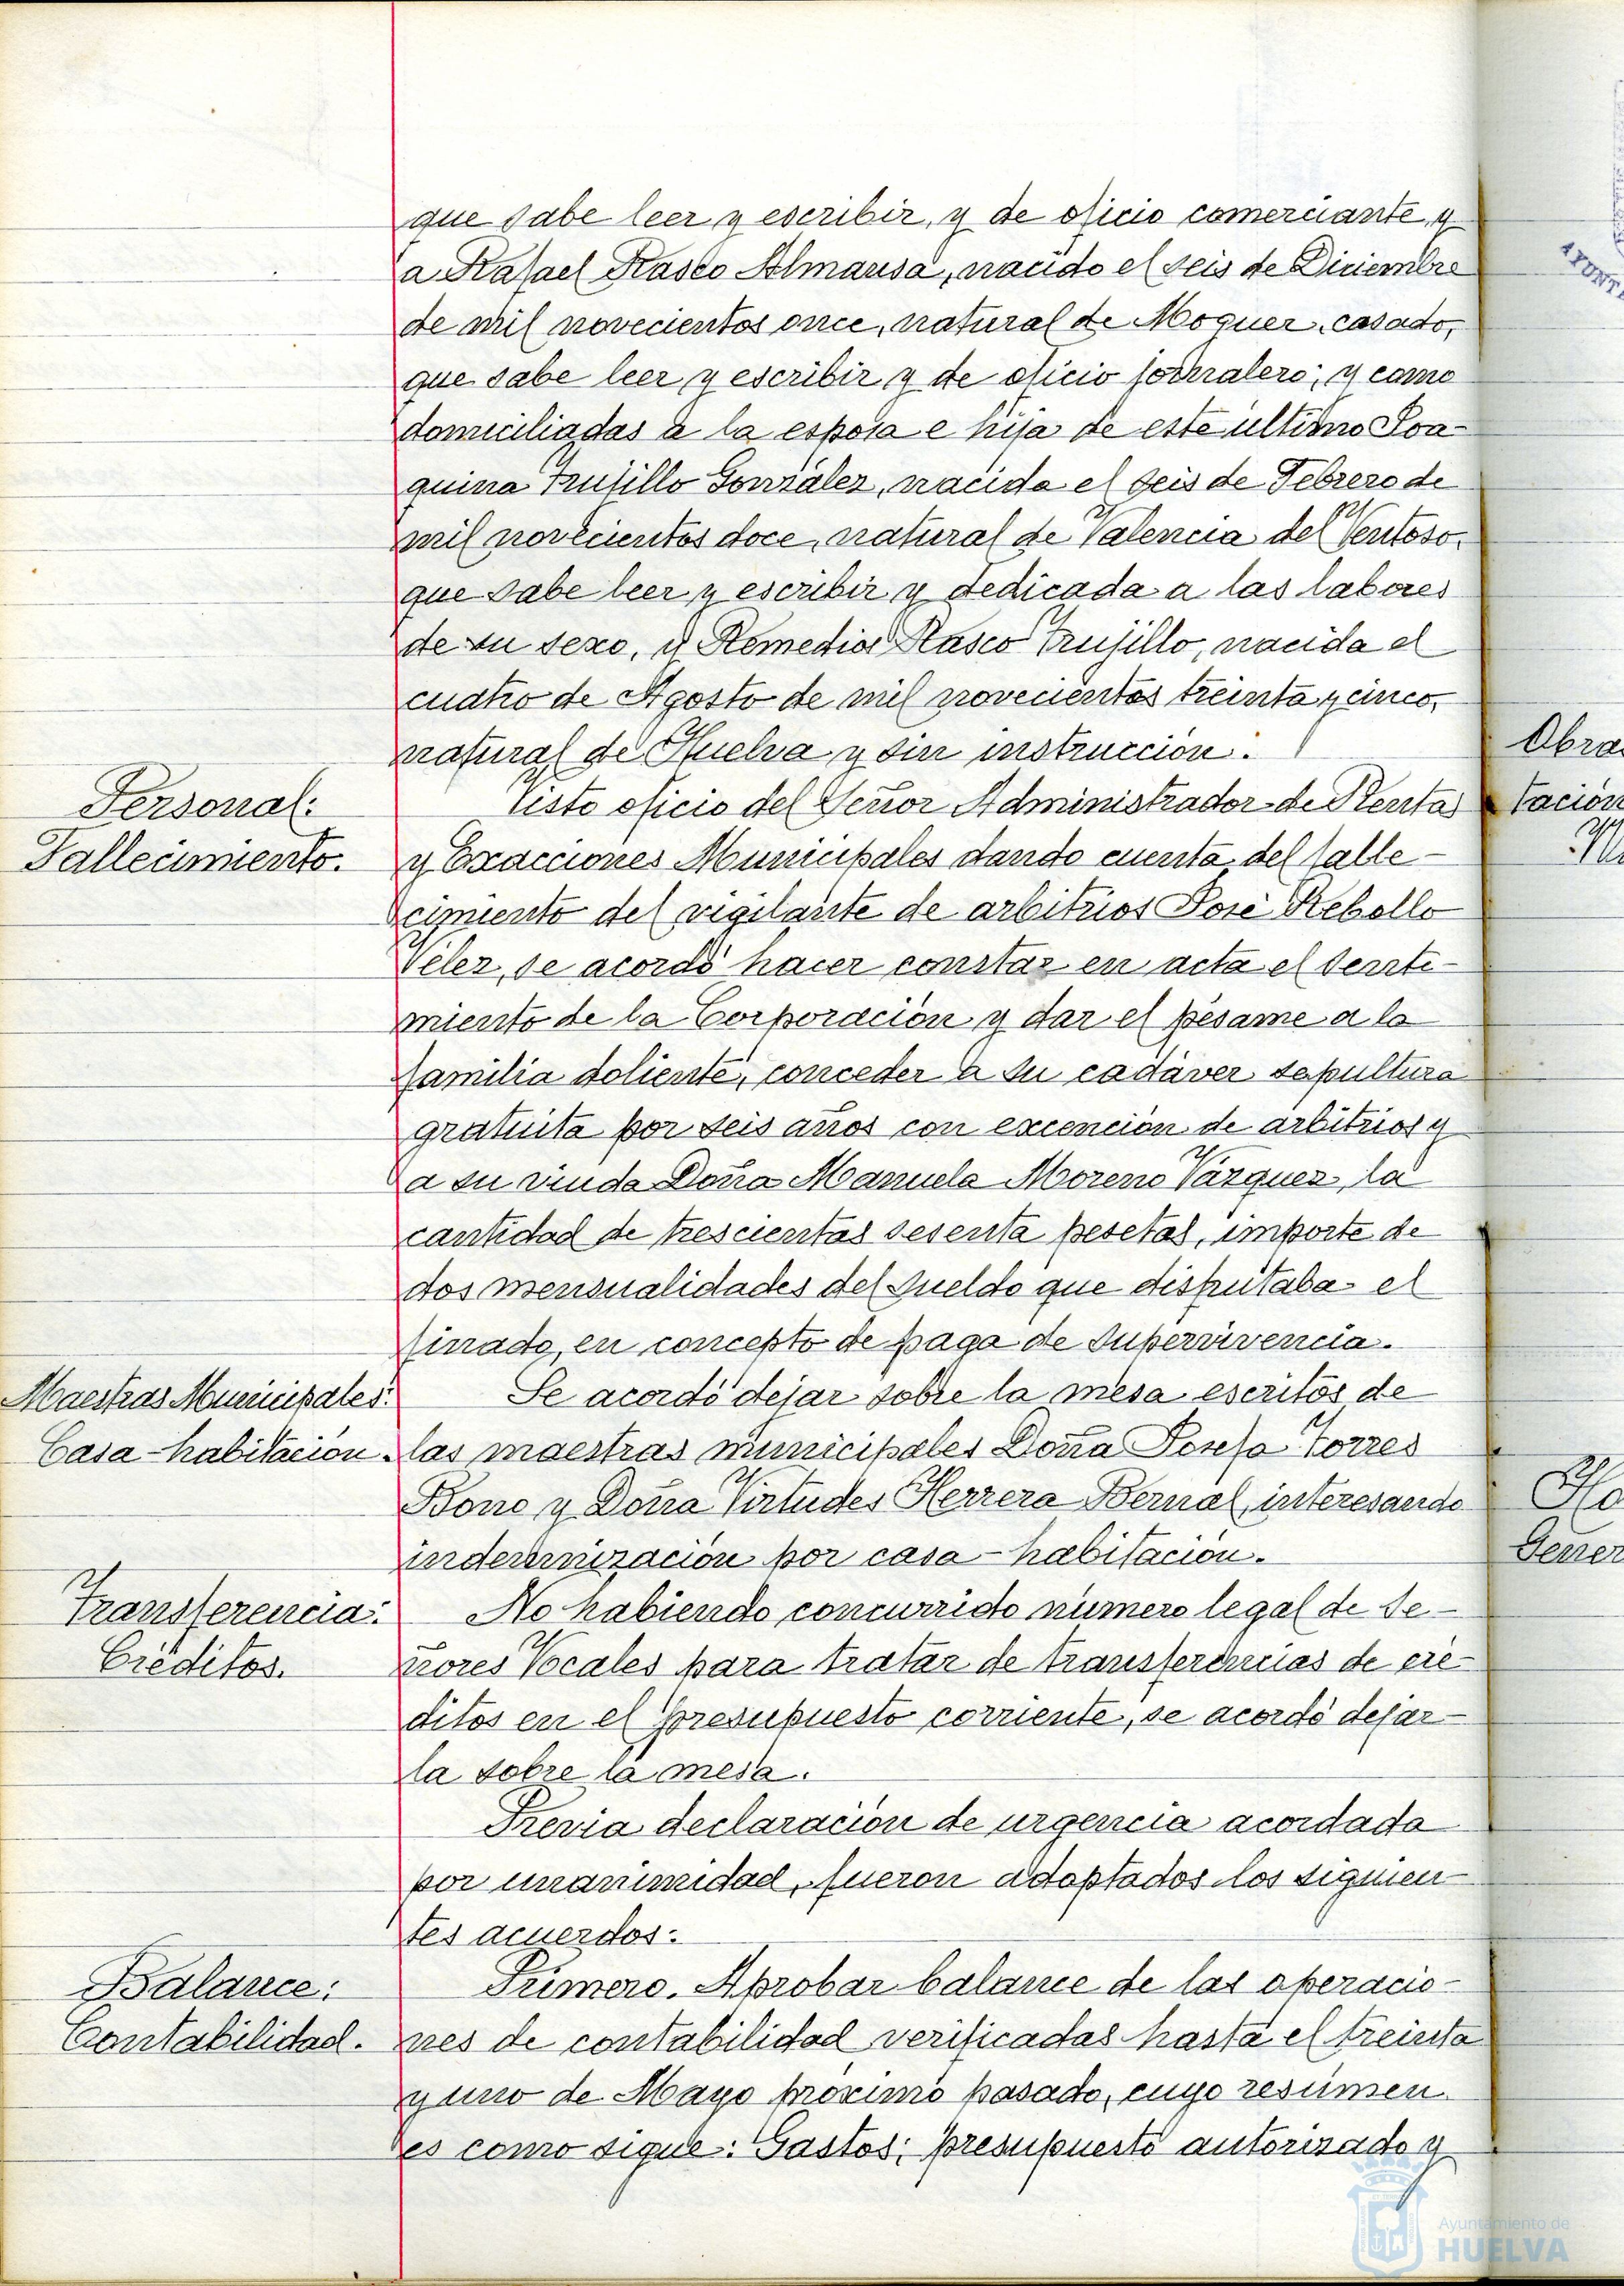 que sabe leer y escribir, y de oficio comerciante, y
a Rafael Rasco Almansa, nacido el seis de Diciembre
de mil novecientos once, natural de Moguer, casado,
que sabe leer y escribir y de oficio jornalero; y como
domiciliadas a la esposa e hija de este último Joa-
quina Trujillo González, nacida el seis de Febrero de
mil novecientos doce, natural de Valencia del Ventoso,
que sabe leer y escribir y dedicada a las labores
de su sexo, y Remedios Rasco Trujillo, nacida el
cuatro de Agosto de mil novecientos treinta y cinco,
natural de Huelva y sin instrucción.
Personal:
Fallecimiento.
Visto oficio del Señor Administrador de Rentas
y Exacciones Municipales dando cuenta del falle-
cimiento del vigilante de arbitrios José Rebollo
Vélez, se acordó hacer constar en acta el senti-
miento de la Corporación y dar el pésame a la
familia doliente, conceder a su cadáver sepultura
gratuita por seis años con excención de arbitrios y
a su viuda Doña Manuela Moreno Vázquez, la
cantidad de trescientas sesenta pesetas, importe de
dos mensualidades del sueldo que disfrutaba el
finado, en concepto de paga de supervivencia.
Maestras Municipales:
Casa-habitación.
Se acordó dejar sobre la mesa escritos de
las maestras municipales Doña Josefa Torres
Bono y Doña Virtudes Herrera Bernal, interesando
indemnización por casa-habitación.
Transferencia:
Créditos.
No habiendo concurrido número legal de Se-
ñores Vocales para tratar de transferencias de cré-
ditos en el presupuesto corriente, se acordó dejar-
la sobre la mesa.
Previa declaración de urgencia acordada
por unanimidad, fueron adoptados los siguien-
tes acuerdos:
Balance:
Contabilidad.
Primero. Aprobar balance de las operacio-
nes de contabilidad verificadas hasta el treinta
y uno de Mayo próximo pasado, cuyo resúmen
es como sigue: Gastos: presupuesto autorizado y
Ayuntamiento de
HUELVA